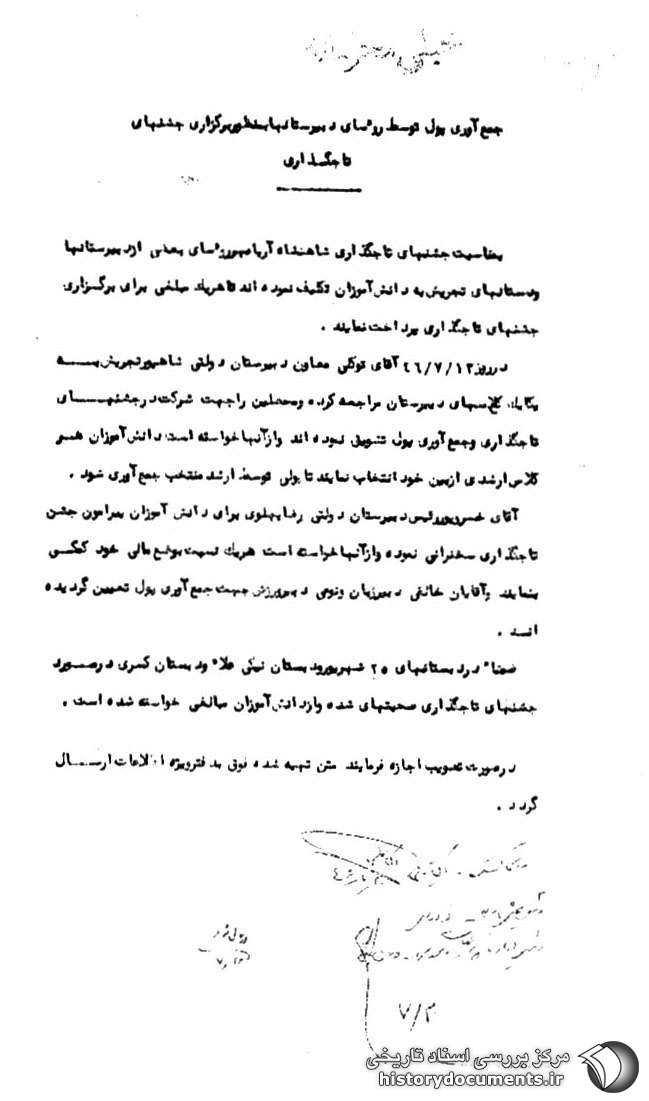 جمع‌آوری پول توسط روءسای دبیرستانها بمنظور برگزاری جشنهای
تاجگذاری
بمناسبت جشنهای تاجگذاری شاهنشاه آریامهر روءسای بعضی از دبیرستانها
ودبستانهای تجریش به دانش‌آموزان تکلیف نموده اند تا هریك مبلغی برای برگزاری
جشنهای تاجگذاری پرداخت نمایند .
در روز ٤٦/٧/١٢ آقای توکلی معاون دبیرستان دولتی شاهپور تجریش به
یکایك کلاسهای دبیرستان مراجعه کرده ومحصلین را جهت شرکت در جشنهای
تاجگذاری وجمع‌آوری پول تشویق نموده اند وازآنها خواسته است دانش‌آموزان هر
کلاس ارشدی ازبین خود انتخاب نمایند تا پولی توسط ارشد منتخب جمع‌آوری شود .
آقای خسروپور رئیس دبیرستان دولتی رضا پهلوی برای دانش آموزان پیرامون جشن
تاجگذاری سخنرانی نموده وازآنها خواسته است هریك نسبت بوضع مالی خود کمکی
بنمایند وآقایان خالقی دبیر زبان و دبیر ورزش جهت جمع‌آوری پول تعیین گردیده
اند .
ضمنا" در دبستانهای ٢٥ شهریور ودبستان نیکی علا ودبستان کسری در مورد
جشنهای تاجگذاری صحبتهای شده وازدانش‌آموزان مبالغی خواسته شده است .
در صورت تصویب اجازه فرمایند متن تهیه شده فوق به دفتر ویژه اطلاعات ارسال
گردد .
٧/٣
مرکز بررسی اسناد تاریخی
historydocuments.ir